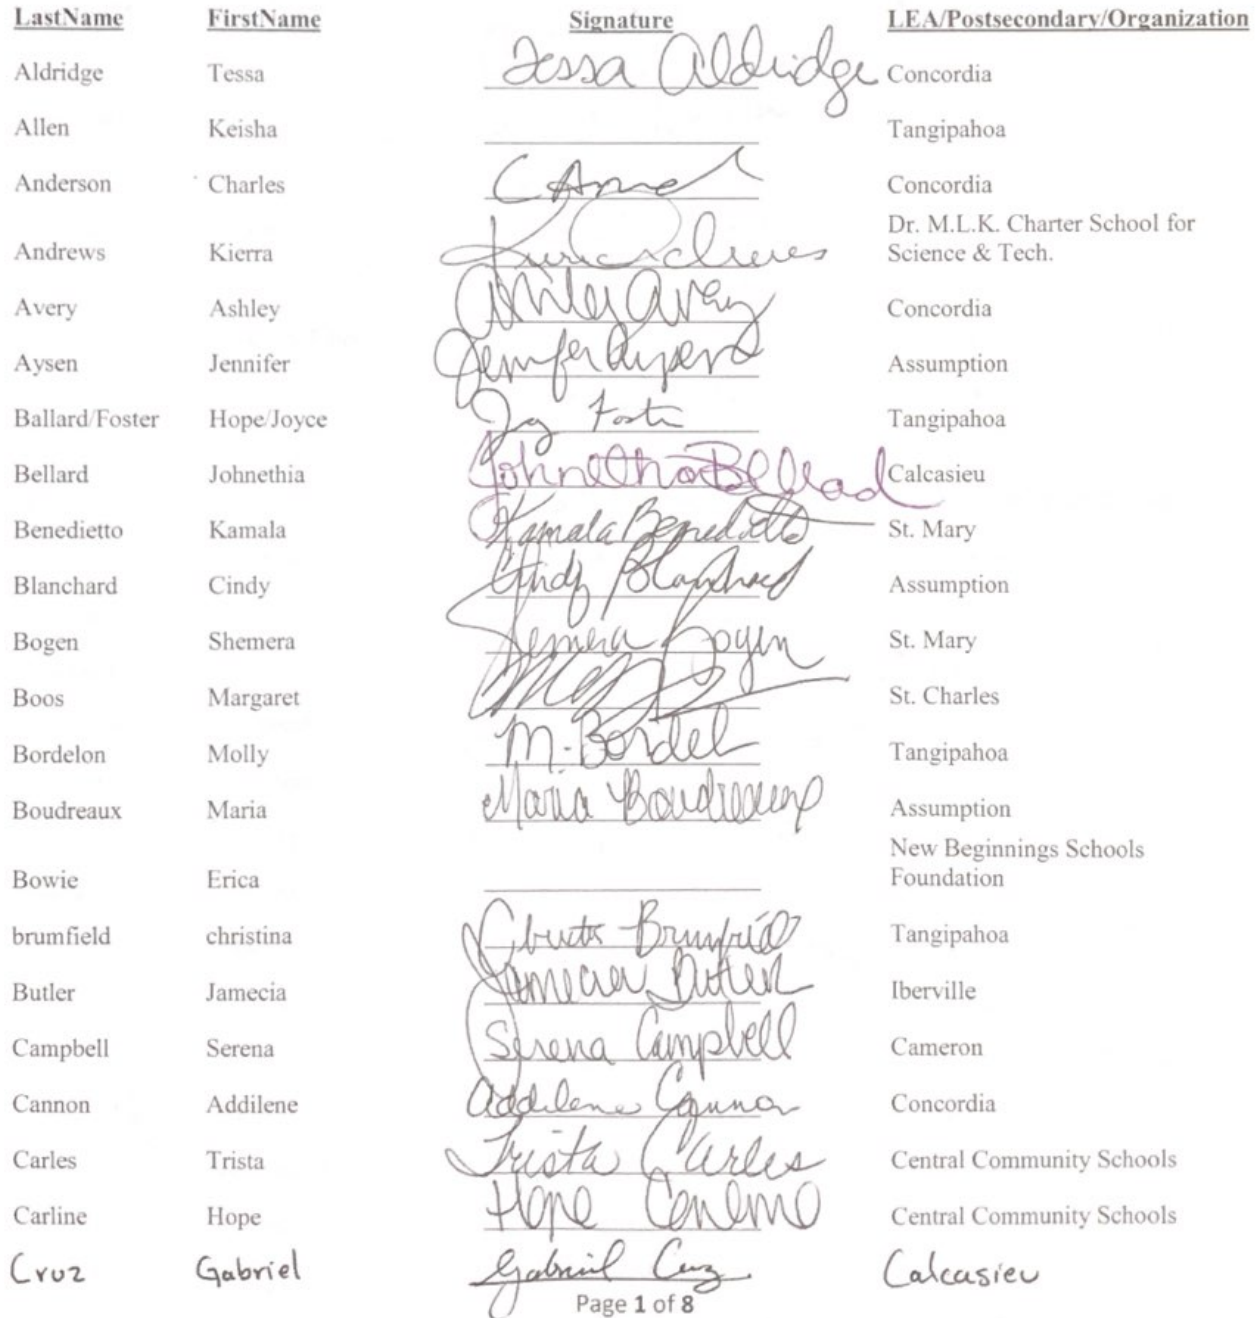 LastName FirstName Signature LEA/Postsecondary/Organization
Aldridge Tessa Tessa Aldridge Concordia
Allen Keisha Tangipahoa
Anderson Charles Concordia
Dr. M.L.K. Charter School for
Andrews Kierra Science & Tech.
Avery Ashley Ashley Avery Concordia
Aysen Jennifer Assumption
Ballard/Foster Hope/Joyce Tangipahoa
Bellard Johnethia Calcasieu
Benedietto Kamala Kamala Benedietto St. Mary
Blanchard Cindy Cindy Blanchard Assumption
Bogen Shemera Shemera Bogen St. Mary
Boos Margaret St. Charles
Bordelon Molly M. Bordel Tangipahoa
Boudreaux Maria Maria Boudreaux Assumption
New Beginnings Schools
Bowie Erica Foundation
brumfield christina Brumfield Tangipahoa
Butler Jamecia Jamecia Butler Iberville
Campbell Serena Serena Campbell Cameron
Cannon Addilene Addilene Cannon Concordia
Carles Trista Trista Carles Central Community Schools
Carline Hope Hope Central Community Schools
Cruz Gabriel Gabriel Cruz Calcasieu
Page 1 of 8